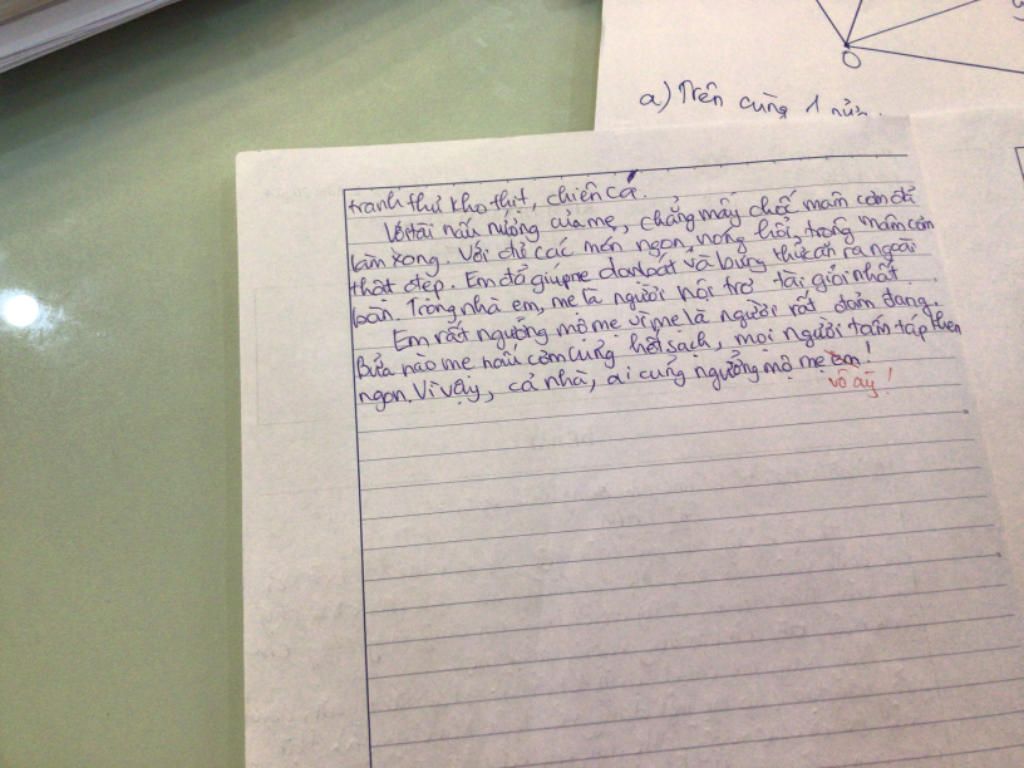 O
a) Trên cùng 1 nửa
tranh thủ kho thịt, chiên cá.
Với tài nấu nướng của mẹ, chẳng mấy chốc mâm cơm đã
làm xong. Với đủ các món ngon, nóng hổi, trong mâm cơm
thật đẹp. Em đã giúp mẹ dọn bát và bưng thức ăn ra ngoài
bàn. Trong nhà em, mẹ là người nội trợ tài giỏi nhất.
Em rất ngưỡng mộ mẹ vì mẹ là người rất đảm đang.
Bữa nào mẹ nấu cơm cũng hết sạch, mọi người tấm tắp khen
ngon. Vì vậy, cả nhà, ai cũng ngưỡng mộ mẹ em!